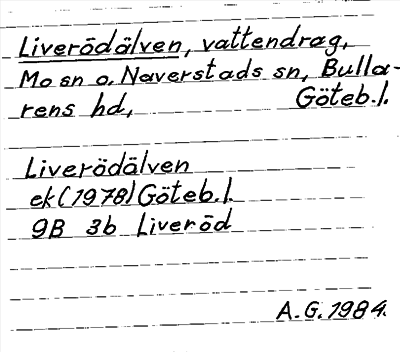 Liverödälven, vattendrag,
Mo sn o. Naverstads sn, Bulla-
rens hd, Göteb.l.
Liverödälven
ek (1978) Göteb.l.
9B 3b Liveröd
A.G. 1984.